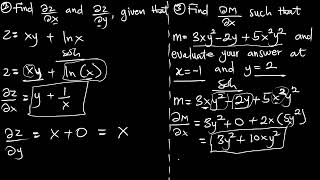 ① Find ∂z/∂x and ∂z/∂y, given that
z = xy + lnx
soln
z = xy + ln(x)
∂z/∂x = y + 1/x
∂z/∂y = x + 0 = x
② Find ∂M/∂x such that
m = 3xy² - 2y + 5x²y² and
evaluate your answer at
x = -1 and y = 2
soln
m = 3xy² - 2y + 5x²y²
∂M/∂x = 3y² + 0 + 2x(5y²)
= 3y² + 10xy²